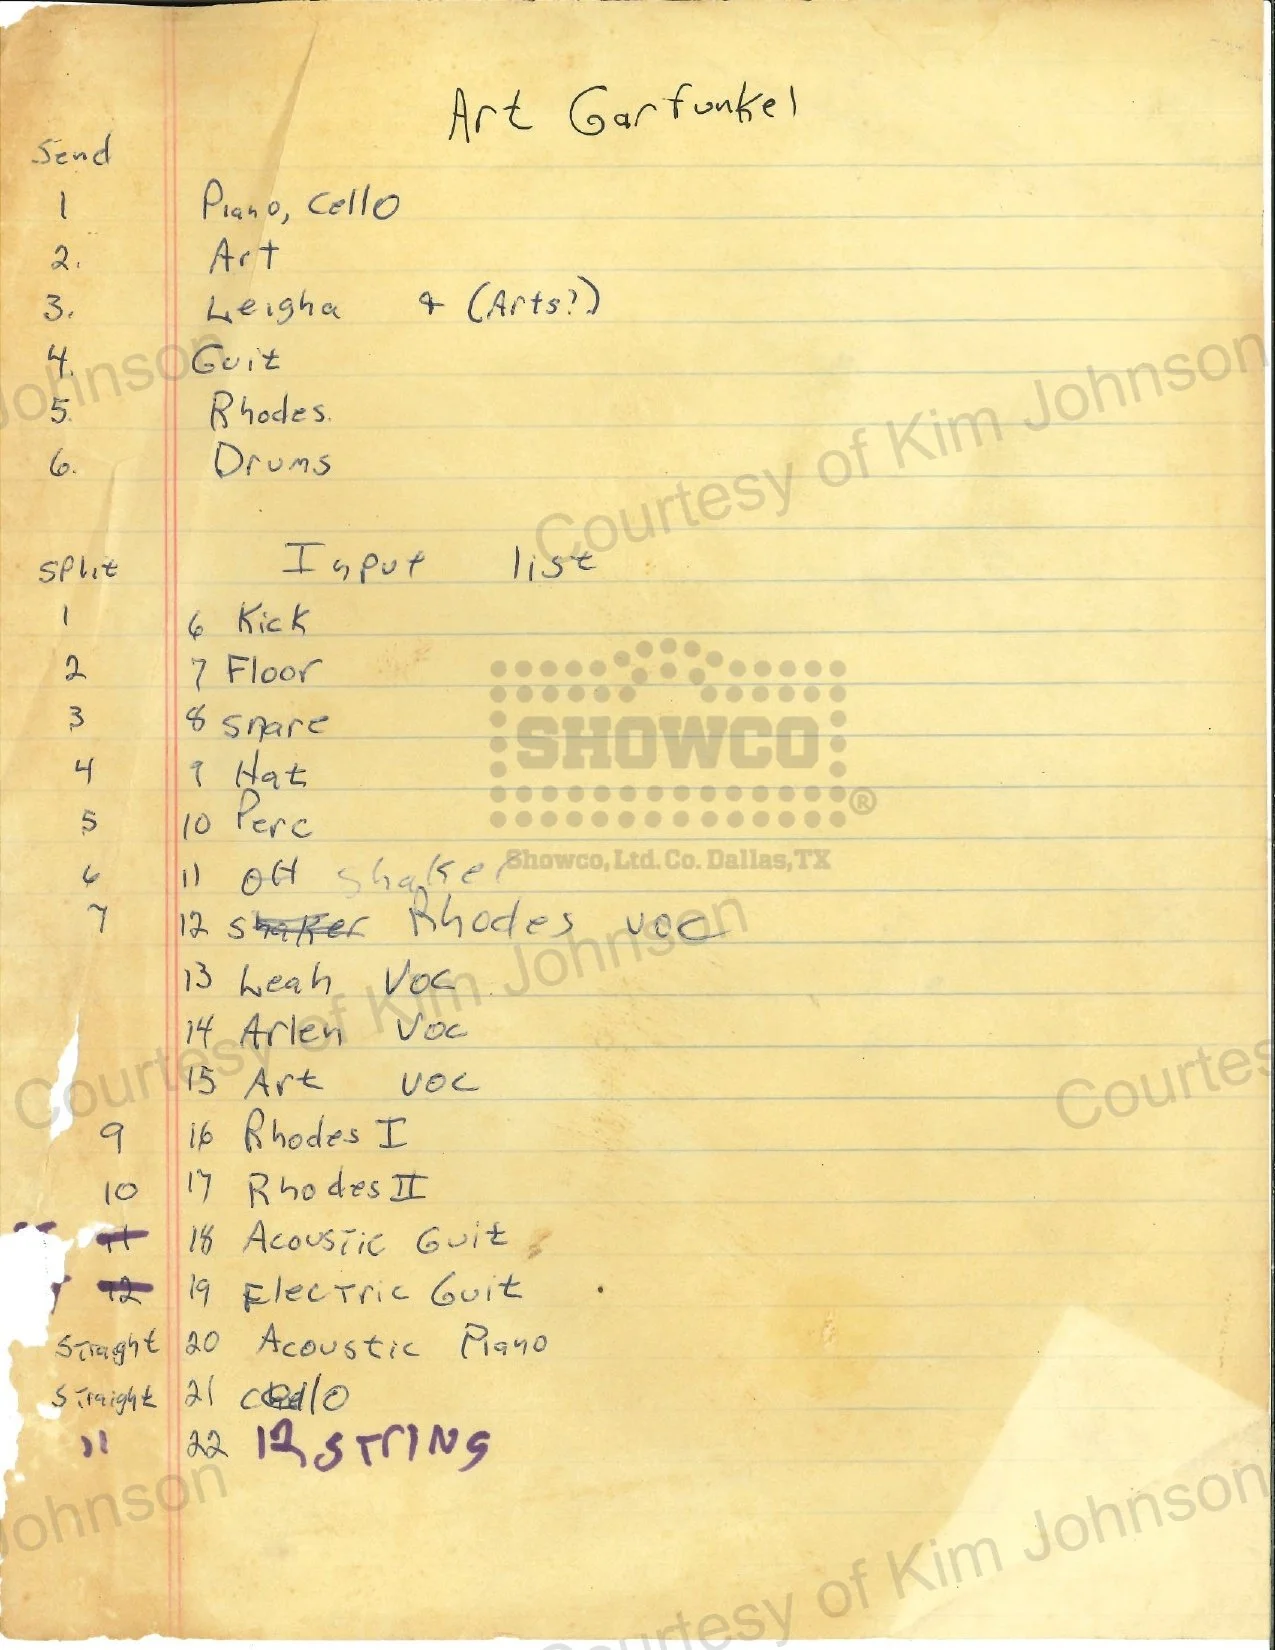 Art Garfunkel
Send
1 Piano, Cello
2. Art
3. Leigha & (Arts?)
4. Guit
5. Rhodes.
6. Drums
Split Input list
1 6 Kick
2 7 Floor
3 8 Snare
4 9 Hat
5 10 Perc
6 11 OH shaker
7 12 Shaker Rhodes voc
13 Leah Voc
14 Arlen Voc
15 Art voc
9 16 Rhodes I
10 17 Rhodes II
11 18 Acoustic Guit
12 19 Electric Guit
Straght 20 Acoustic Piano
Straight 21 Cello
11 22 12 STRING
SHOWCO®
Showco, Ltd. Co. Dallas, TX
Johnson
Courtesy of Kim Johnson
Courtesy of Kim Johnson
Courtes
Johnson
Courtesy of Kim Johnson